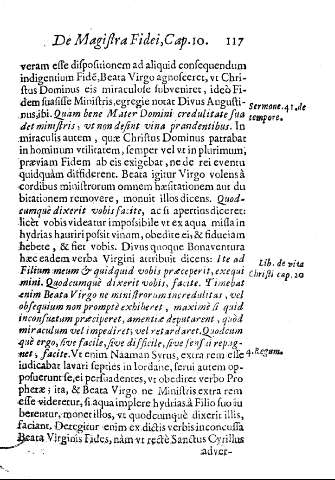 De Magistra Fidei, Cap. 10. 117
veram esse dispositionem ad aliquid consequendum
indigentium Fidē, Beata Virgo agnosceret, vt Chri-
stus Dominus eis miraculose subveniret, ideò Fi-
dem suasisse Ministris, egregie notat Divus Augusti-
nus, ibi. Quam bene Mater Domini credulitate sua
det ministris, vt non desint vina prandentibus. In
miraculis autem, quæ Christus Dominus patrabat
in hominum vtilitatem, semper vel vt in plurimum,
præviam Fidem ab eis exigebat, ne de rei eventu
quidquàm diffiderent. Beata igitur Virgo volens à
cordibus ministrorum omnem hæsitationem aut du
bitationem removere, monuit illos dicens. Quod-
cumquè dixerit vobis facite, ac si apertius diceret:
licèt vobis videatur impossibile vt ex aqua missa in
hydrias hauriri possit vinum, obedite ei, & fiduciam
habete, & fiet vobis. Divus quoque Bonaventura
hæc eadem verba Virgini attribuit dicens: Ite ad
Filium meum & quidquid vobis præceperit, exequi
mini. Quodcumquè dixerit vobis, facite. Timebat
enim Beata Virgo ne ministrorum incredulitas, vel
obsequium non promptè exhiberet, maximè si quid
inconsuetum præciperet, amentiæ deputarent, quod
miraculum vel impediret, vel retardaret. Quodcum
què ergo, sive facile, sive difficile, sive sensui repug-
net; facite. Vt enim Naaman Syrus, extra rem esse
iudicabat lavari septies in Iordane, servi autem op-
posuerunt se, ei persuadentes, vt obediret verbo Pro
phetæ; ita, & Beata Virgo ne Ministris extra rem
esse videretur, si aqua implere hydrias à Filio suo iu
berentur, monet illos, vt quodcumquè dixerit illis,
faciant. Detegitur enim ex dictis verbis inconcussa
Beata Virginis Fides, nàm vt rectè Sanctus Cyrillus
adver-
Sermone. 41. de
tempore.
Lib. de vita
Christi cap. 20
4. Regum.